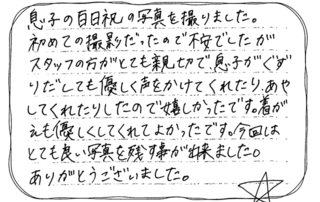 息子の百日祝の写真を撮りました。
初めての撮影だったので不安でしたが
スタッフの方がとても親切で、息子がぐず
りだしても優しく声をかけてくれたり、あや
してくれたりしたので嬉しかったです。着が
えも優しくしてくれてよかったです。今回は
とても良い写真を残す事が出来ました。
ありがとうございました。